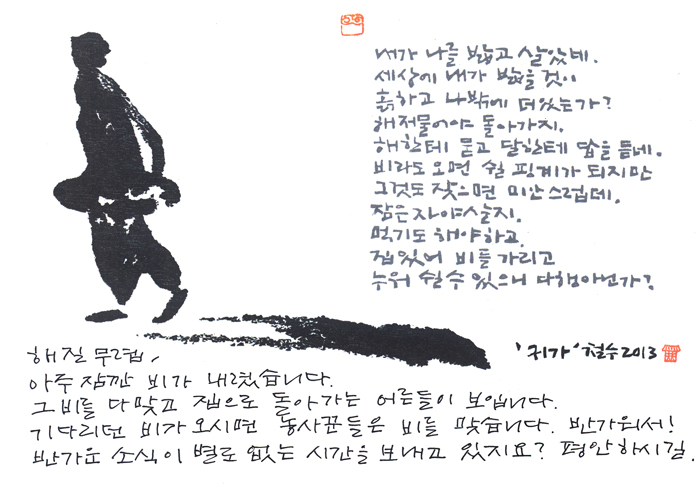 내가 나를 밟고 살았네.
세상에 내가 밟을 것이
흙하고 나밖에 더 있는가?
해 저물어야 돌아가지.
해한테 묻고 달한테 답을 듣네.
비라도 오면 쉴 핑계가 되지만
그것도 잦으면 미안스럽데.
잠은 자야 살지.
먹기도 해야 하고.
집 있어 비를 가리고
누워 쉴 수 있으니 다행 아닌가?
'귀가' 철수 2013
해질 무렵,
아주 잠깐 비가 내렸습니다.
그 비를 다 맞고 집으로 돌아가는 어른들이 보입니다.
기다리던 비가 오시면 농사꾼들은 비를 맞습니다. 반가워서!
반가운 소식이 별로 없는 시간을 보내고 있지요? 평안하시길.